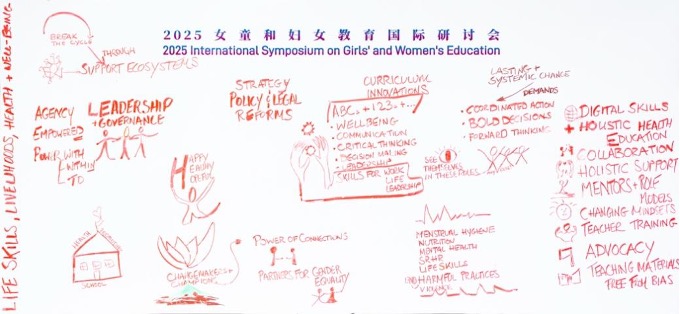 2025 女童和妇女教育国际研讨会
2025 International Symposium on Girls' and Women's Education
LIFE SKILLS, LIVELIHOODS, HEALTH + WELL-BEING
BREAK
THE CYCLE
THROUGH
SUPPORT ECOSYSTEMS
AGENCY
EMPOWERED
POWER WITH
WITHIN
TO
LEADERSHIP
+ GOVERNANCE
HAPPY
HEALTHY
STRATEGY
POLICY & LEGAL
REFORMS
CURRICULUM
INNOVATIONS
ABC, + 123, +...
• WELLBEING
• COMMUNICATION
• CRITICAL THINKING
• DECISION MAKING
• LEADERSHIP
SKILLS FOR WORK
LIFE
LEADERSHIP
LASTING +
SYSTEMIC CHANGE
DEMANDS
• COORDINATED ACTION
• BOLD DECISIONS
• FORWARD THINKING
SEE
THEMSELVES
IN THESE ROLES
DIGITAL SKILLS
+ HOLISTIC HEALTH
EDUCATION
COLLABORATION
HOLISTIC SUPPORT
MENTORS + ROLE
MODELS
CHANGING MINDSETS
TEACHER TRAINING
ADVOCACY
TEACHING MATERIALS
FREE FROM BIAS
HEALTH
SCHOOL
CHANGEMAKERS +
CHAMPIONS
POWER OF CONNECTIONS
PARTNERS FOR GENDER
EQUALITY
MENSTRUAL HYGIENE
NUTRITION
MENTAL HEALTH
SRHR
LIFE SKILLS
HARMFUL PRACTICES